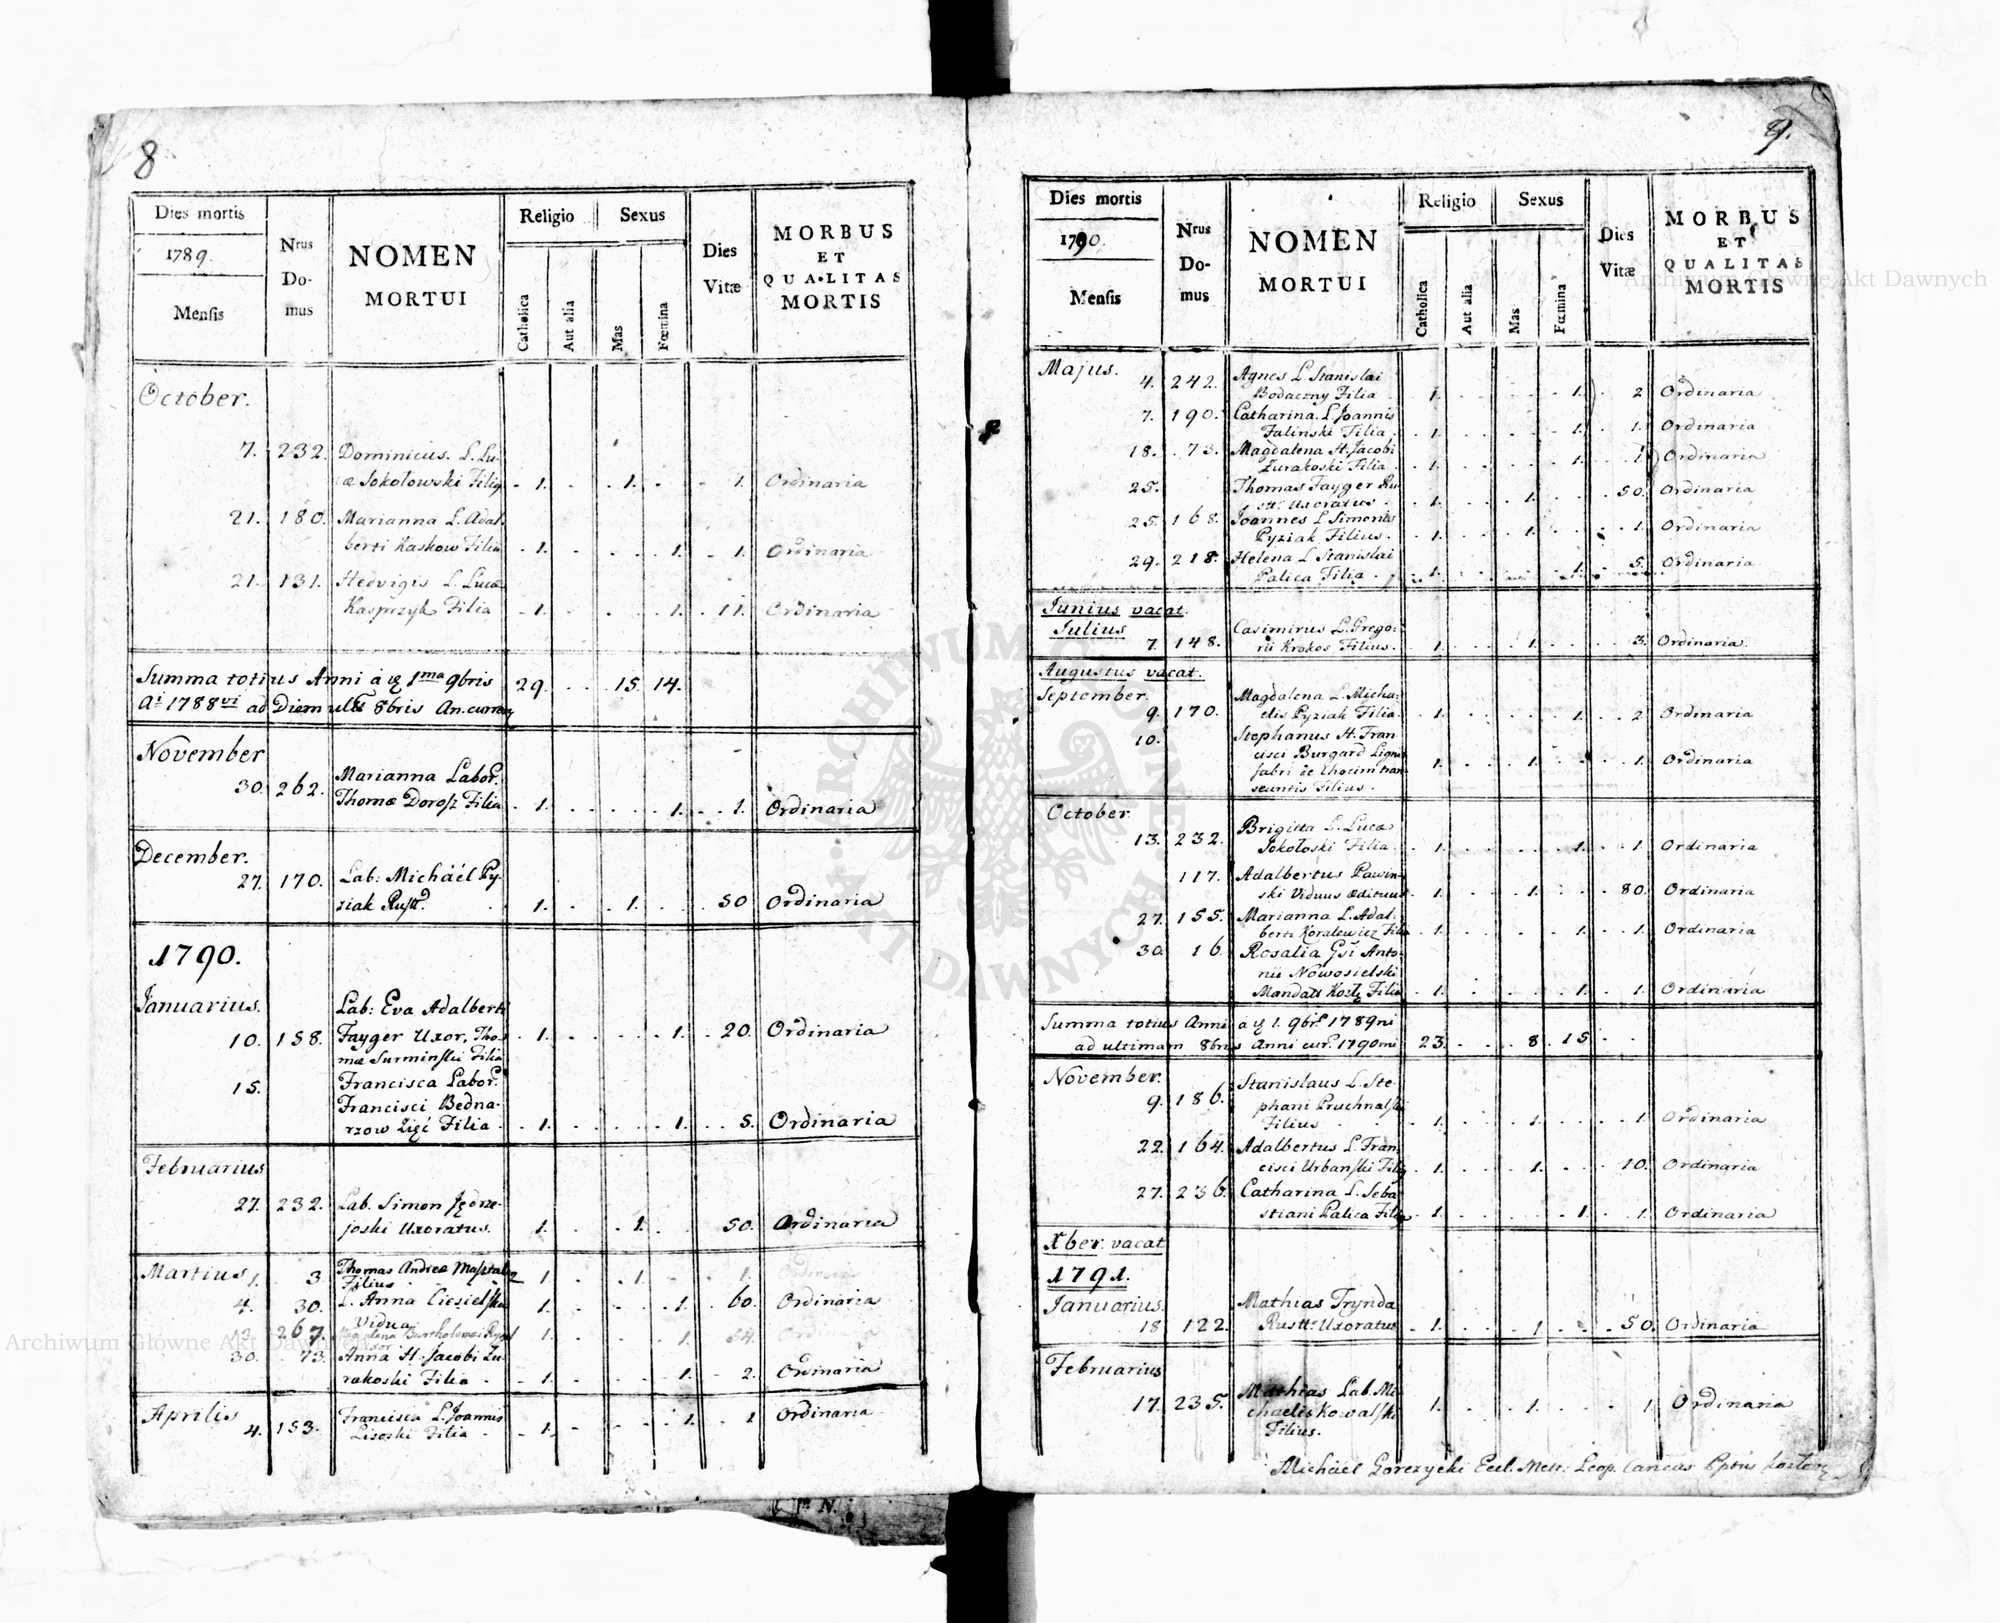 8
Dies mortis
1789.
Mensis
Nrus
Do-
mus
NOMEN
MORTUI
Religio
Sexus
Catholica
Aut alia
Mas
Fœmina
Dies
Vitæ
MORBUS
ET
QUALITAS
MORTIS
October.
7. 232. Dominicus. L. Lu-
cæ Sokołowski Filig . 1. . . 1. . . 1. Ordinaria
21. 180. Marianna L. Adal-
berti Kaskow Filia . 1. . . . . 1. . . 1. Ordinaria
21. 131. Hedvigis L. Lucæ
Kasprzyk Filia . 1. . . . 1. . 11. Ordinaria
Summa totius Anni à 1ma 9bris 29. . . 15. 14.
Ai 1788vi ad Diem 8bris An. curren
November
30. 262. Marianna Labor.
Thomæ Dorosz Filia . 1. . . . . 1. . . 1. Ordinaria
December.
27. 170. Lab: Michäél Py-
ziak . 1. . . 1. . . 50 Ordinaria
1790.
Januarius.
Lab: Eva Adalberti
10. 158. Fayger Uxor, Tho-
mæ Surminski Filia . 1. . . . . 1. . . 20. Ordinaria
15. Francisca Labor.
Francisci Bedna-
rzow Filia . . 1. . . . . 1. . . 5. Ordinaria
Februarius
27. 232. Lab. Simon Jędrze-
joski Uxoratus. 1. . . 1. . 50. Ordinaria
Martius 1. 3. Thomas Andreæ
Filius . . 1 . . 1. . 1.
4. 30. L. Anna Ciesielska
Vidua 1. . . . 1. . 60. Ordinaria
267. Magdalena Bartholomæi 1. . . . 1. 54.
30. 73. Anna H. Jacobi Zu-
rakoski Filia . . 1. . . . 1. . 2. Ordinaria
Aprilis
4. 153. Francisca L. Joannis
Lisoski Filia . . 1. . . . 1. . 1 Ordinaria
9.
Dies mortis
1790.
Mensis
Nrus
Do-
mus
NOMEN
MORTUI
Religio
Sexus
Catholica
Aut alia
Mas
Fœmina
Dies
Vitæ
MORBUS
ET
QUALITAS
MORTIS
Majus.
4. 242. Agnes L. Stanislai
Bodaczny Filia . 1. . . . . 1. . 2 Ordinaria
7. 190. Catharina. L Joannis
Falinski Filia . 1. . . . . 1. . 1. Ordinaria
18. . 73. Magdalena H. Jacobi
Zurakoski Filia . 1. . . . . 1. . 1 Ordinaria
25. Thomas Fayger Ru-
stt. Uxoratus . 1. . . 1. . . 50. Ordinaria
25. 168. Joannes L Simonis
Pyziak Filius . . 1. . . 1. . . 1. Ordinaria
29. 218. Helena L Stanislai
Palica Filia . 1. . . . 1. . 5. Ordinaria
Junius vacat.
Julius
7. 148. Casimirus L. Grego-
rii Krokos Filius. . 1. . . 1. . . . 3. Ordinaria.
Augustus vacat.
September.
9. 170. Magdalena L. Micha-
elis Pyziak Filia . 1. . . . . 1. . . 2 Ordinaria
10. Stephanus H. Fran-
cisci Burgard Ligni
fabri de Chocim tran-
seuntis Filius . . 1. . . 1. . . . 1. Ordinaria
October.
13. 232. Brigitta L. Lucæ
Sokołoski Filia . . 1. . . . . 1. . . 1. Ordinaria
117. Adalbertus Pawin-
ski Viduus ædituus . 1. . . 1. . . . 80. Ordinaria
27. 155. Marianna L. Adal-
berti Koralewicz Filia . 1. . . . . 1. . 1. Ordinaria
30. 16. Rosalia Gsi Anto-
nii Nowosielski
Mandatt Filia . 1. . . . . 1. . 1. Ordinaria
Summa totius Anni à 1. 9br. 1789ni
ad ultimam 8bris Anni cur. 1790mi 23. . . 8. 15 . .
November.
9. 186. Stanislaus L. Ste-
phani Pruchnalski
Filius . . 1. . . 1. . . . 1. Ordinaria
22. 164. Adalbertus L. Fran-
cisci Urbanski Filig . 1. . . 1. . . . 10. Ordinaria
27. 236. Catharina L. Seba-
stiani Palica Filia . 1. . . . . 1. . . 1. Ordinaria
Xber. vacat
1791.
Januarius.
18 122. Mathias Trynda
Rustt: Uxoratus . 1. . . 1. . . . 50. Ordinaria
Februarius
17. 235. Mathias Lab. Mi-
chaelis Kowalski
Filius. 1. . . 1. . . . 1. Ordinaria
Michäel Gorczycki Eccl. Metr: Leop. Caneus
Archiwum Główne Akt Dawnych
Archiwum Główne Akt Dawnych
ARCHIWUM GŁÓWNE
AKT DAWNYCH